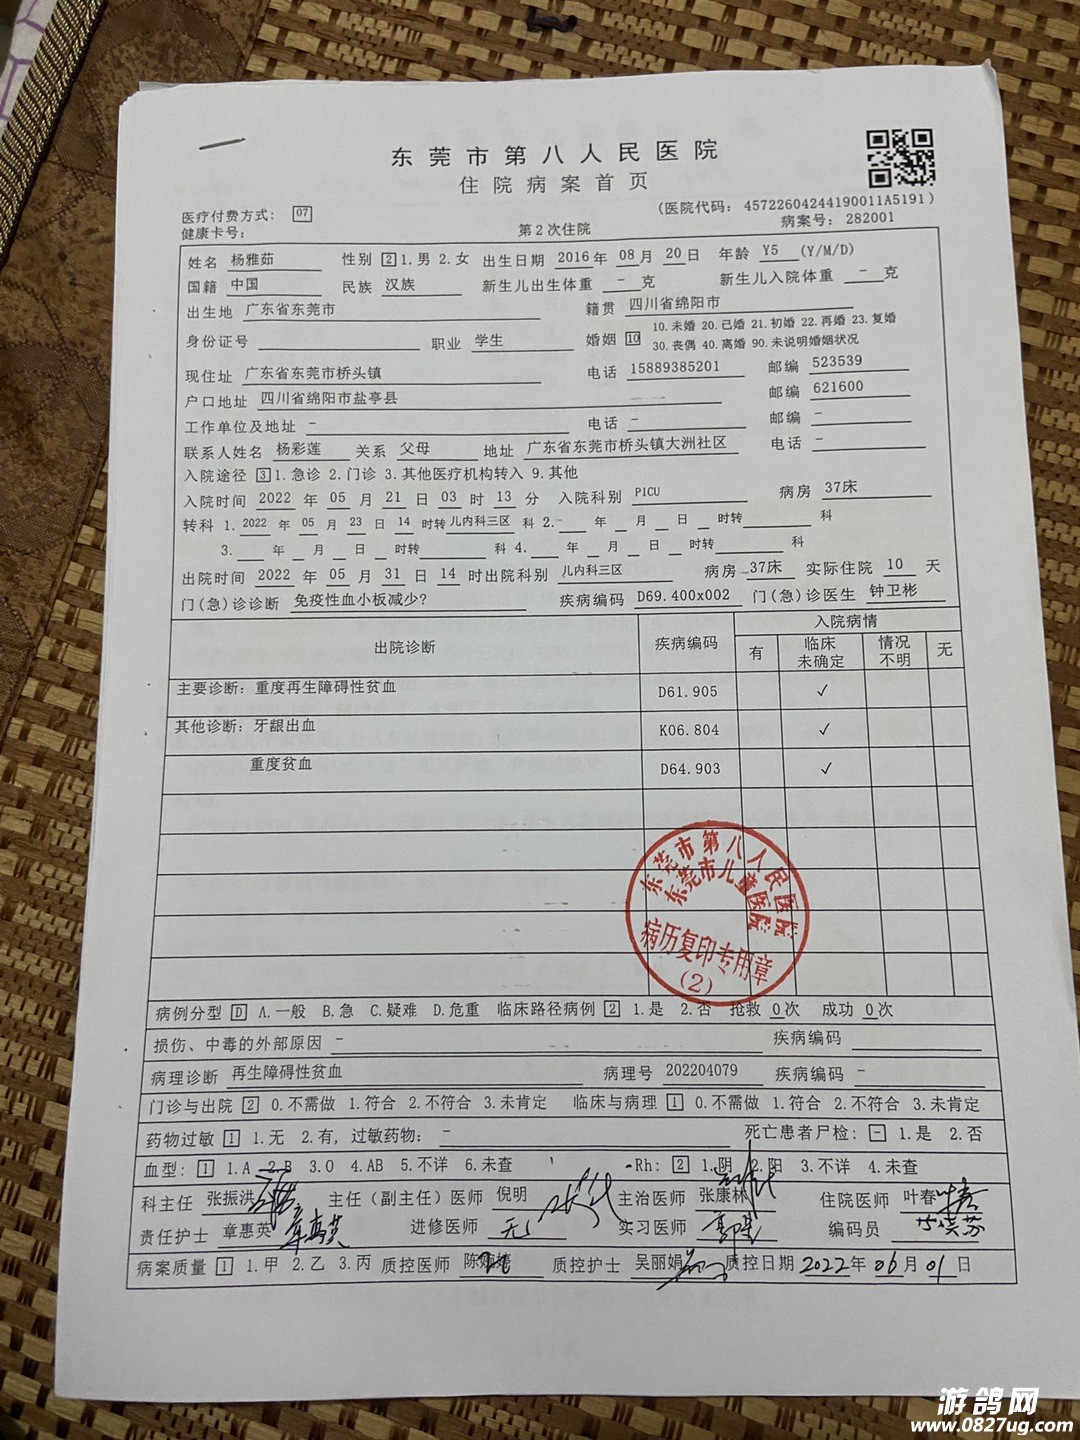 东莞市第八人民医院
住院病案首页
(医院代码: 45722604244190011A5191)
医疗付费方式: 07
健康卡号: 第2次住院 病案号: 282001
姓名 杨雅茹 性别 2 1.男 2.女 出生日期 2016年 08月 20日 年龄 Y5 (Y/M/D)
国籍 中国 民族 汉族 新生儿出生体重 - 克 新生儿入院体重 - 克
出生地 广东省东莞市 籍贯 四川省绵阳市
身份证号 职业 学生 婚姻 10 10.未婚 20.已婚 21.初婚 22.再婚 23.复婚
30.丧偶 40.离婚 90.未说明婚姻状况
现住址 广东省东莞市桥头镇 电话 15889385201 邮编 523539
户口地址 四川省绵阳市盐亭县 邮编 621600
工作单位及地址 - 电话 - 邮编 -
联系人姓名 杨彩莲 关系 父母 地址 广东省东莞市桥头镇大洲社区 电话 -
入院途径 3 1.急诊 2.门诊 3.其他医疗机构转入 9.其他
入院时间 2022 年 05 月 21 日 03 时 13 分 入院科别 PICU 病房 37床
转科 1. 2022 年 05 月 23 日 14 时转 儿内科三区 科 2. - 年 月 日 时转 科
3. 年 月 日 时转 科 4. 年 月 日 时转 科
出院时间 2022 年 05 月 31 日 14 时出院科别 儿内科三区 病房 37床 实际住院 10 天
门(急)诊诊断 免疫性血小板减少? 疾病编码 D69.400x002 门(急)诊医生 钟卫彬
出院诊断 疾病编码 入院病情
有 临床未确定 情况不明 无
主要诊断: 重度再生障碍性贫血 D61.905 ✓
其他诊断: 牙龈出血 K06.804 ✓
重度贫血 D64.903 ✓
东莞市第八人民医院
东莞市儿童医院
病历复印专用章
(2)
病例分型 D A.一般 B.急 C.疑难 D.危重 临床路径病例 2 1.是 2.否 抢救 0次 成功 0次
损伤、中毒的外部原因 - 疾病编码
病理诊断 再生障碍性贫血 病理号 202204079 疾病编码 -
门诊与出院 2 0.不需做 1.符合 2.不符合 3.未肯定 临床与病理 1 0.不需做 1.符合 2.不符合 3.未肯定
药物过敏 1 1.无 2.有, 过敏药物: - 死亡患者尸检: - 1.是 2.否
血型: 1 1.A 2.B 3.O 4.AB 5.不详 6.未查 Rh: 2 1.阴 2.阳 3.不详 4.未查
科主任 张振洪 主任（副主任）医师 倪明 主治医师 张康林 住院医师 叶春
责任护士 章惠英 章惠英 进修医师 无 实习医师 编码员
病案质量 1 1.甲 2.乙 3.丙 质控医师 质控护士 吴丽娟 质控日期 2022年 06月 01日
游鸽网
www.0827ug.com